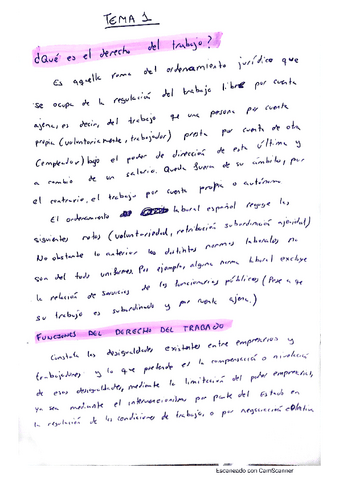 TEMA 1
¿Qué es el derecho del trabajo?
Es aquella rama del ordenamiento jurídico que
se ocupa de la regulación del trabajo libre por cuenta
ajena, es decir, del trabajo que una persona por cuenta
propia (voluntariamente, trabajador) presta por cuenta de otra
(empleador) bajo el poder de dirección de esta última y
a cambio de un salario. Queda fuera de su ámbito, por
el contrario, el trabajo por cuenta propia o autónomo
El ordenamiento laboral español recoge las
siguientes notas (voluntariedad, retribución subordinación ajenidad)
No obstante lo anterior las distintas normas laborales no
son del todo uniformes. Por ejemplo, alguna norma laboral excluye
la relación de servicios de los funcionarios públicos (Pese a que
su trabajo es subordinado y por cuenta ajena.)
FUNCIONES DEL DERECHO DEL TRABAJO
Constata las desigualdades existentes entre empresarios y
trabajadores y lo que pretende es la compensación o nivelación
de esas desigualdades, mediante la limitación del poder empresarial,
ya sea mediante el intervencionismo por parte del Estado en
la regulación de las condiciones de trabajo, o por negociación colectiva
Escaneado con CamScanner